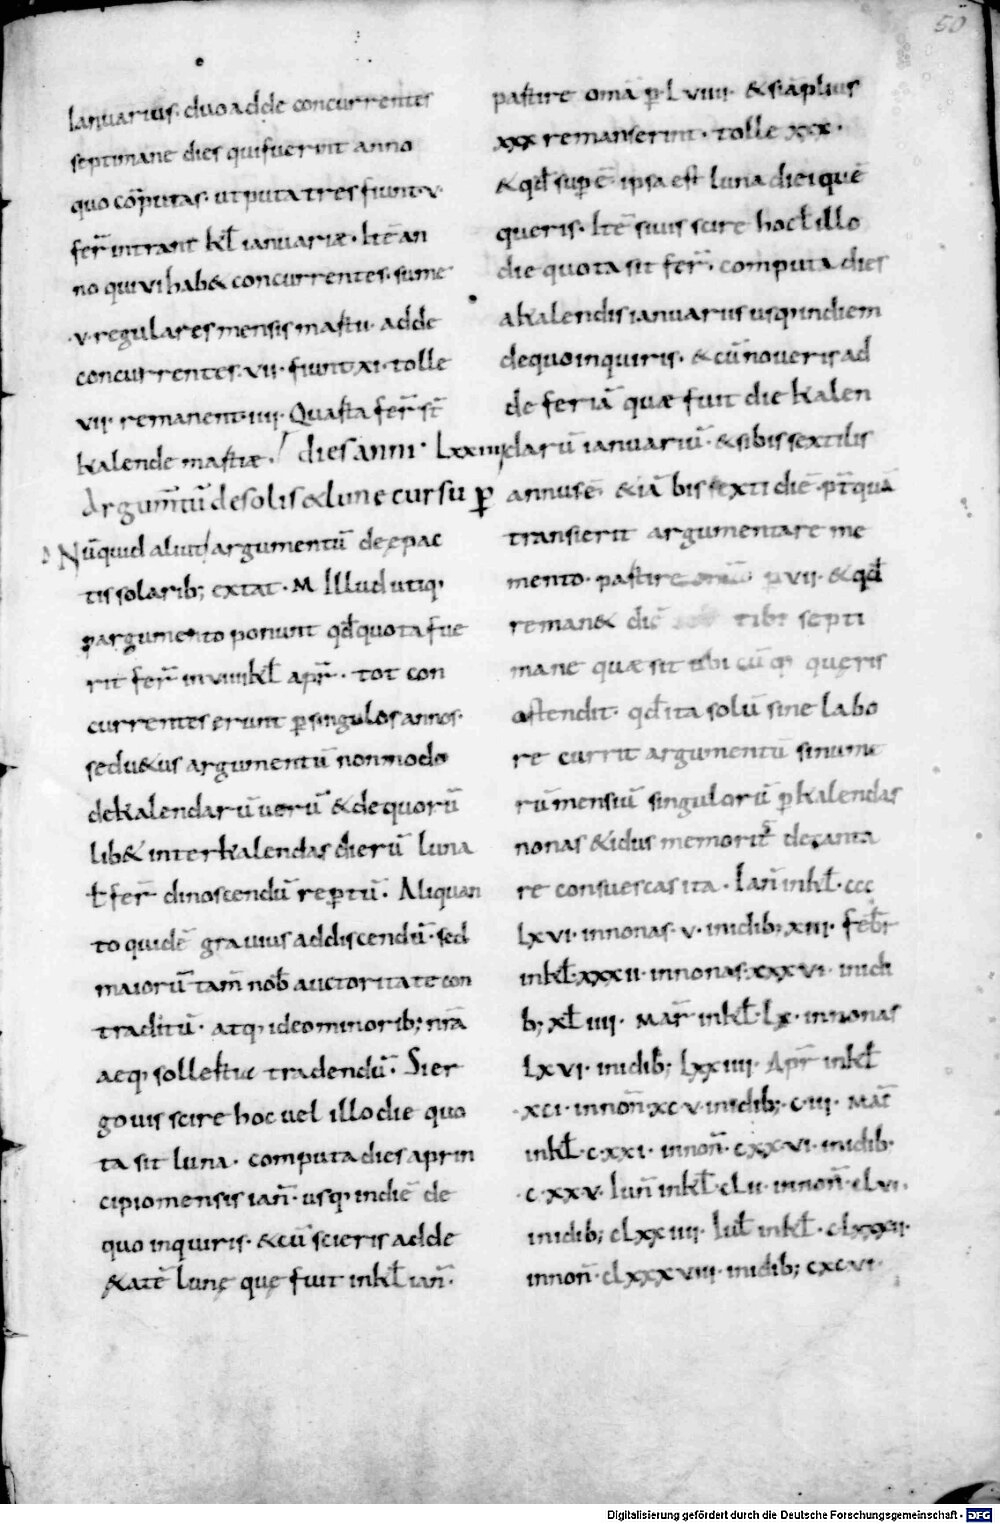 50
Ianuarius· duo adde concurrentes
septimane dies qui fuerint anno
quo cōputas· ut puta tres fiunt·v·
fer̄ intrant kl̄ ianuariæ· Itē an
no qui vi hab& concurrentes· sume
·v· regulares mensis martii· adde
concurrentes·vii· fiunt·xi· tolle
vii· remanent·iiii· Quarta fer̄ st̄
kalende martiæ· dies anni· Lxxiiii
Argum̄tū de solis & lune cursu ꝑ
Nūquid aliut argumentū de epac
tis solarib; extat· M Illud utiq;
ꝑ argumento ponunt qd̄ quota fue
rit fer̄ in viiii kl̄ apr̄· tot con
currentes erunt ꝑ singulos annos·
sed u&us argumentū non modo
de kalendarū uerū & de quorū
lib& inter kalendas dierū luna
ł fer̄ dinoscendū reꝑtū· Aliquan
to quidē grauius addiscendū· sed
maiorū tam̄ nob̄ auctoritate con
traditū· atq; ideo minorib; nr̄a
aeq; sollertia tradendū· Si er
go uis scire hoc uel illo die quo
ta sit luna· computa dies a prin
cipio mensis ian̄· usq; in diē de
quo inquiris· & cū scieris adde
& atē lunę quę fuit in kl̄ ian̄·
partire omā ꝑ·Lviiii· & si āplius
xxx remanserint· tolle xxx·
& qd̄ supē· ipsa est luna diei quē
queris· Itē si uis scire hoc ł illo
die quota sit fer̄· computa dies
a kalendis ianuarus usq; in diem
de quo inquiris· & cū noueris ad
de feriā quæ fuit die kalen
darū ianuariū· & si bissextilis
annus ē· & iā bissexti diē p̄t quā
transierit argumentare me
mento· partire ꝑ vii· & qd̄
reman& diē tibi septi
mane quæ sit ubi cūq; queris
ostendit· qd̄ ita solū sine labo
re currit argumentū si nume
rū mensiū singulorū ꝑ kalendas
nonas & idus memorit̄ decanta
re consuescas ita· Ian̄ in kl̄· ccc
Lxvi· in nonas·v· in idib; xiii· febr̄
in kl̄·xxxii· in nonas·xxxvi· in idi
b; xL iiii· mar̄ in kl̄·Lx· in nonas
Lxvi· in idib; Lxxiiii· Apr̄ in kl̄
·xci· in non̄·xcv· in idib;·c·iii· mai̅
in kl̄·c·xxi· in non̄·cxxvi· in idib;
·c·xxv· Iun̄ in kl̄·cLii· in non̄·cLvi·
in idib; cLxxiiii· Iul̄ in kl̄·cLxxxii·
in non̄·cLxxxviii· in idib; cxcvi·
Digitalisierung gefördert durch die Deutsche Forschungsgemeinschaft - DFG